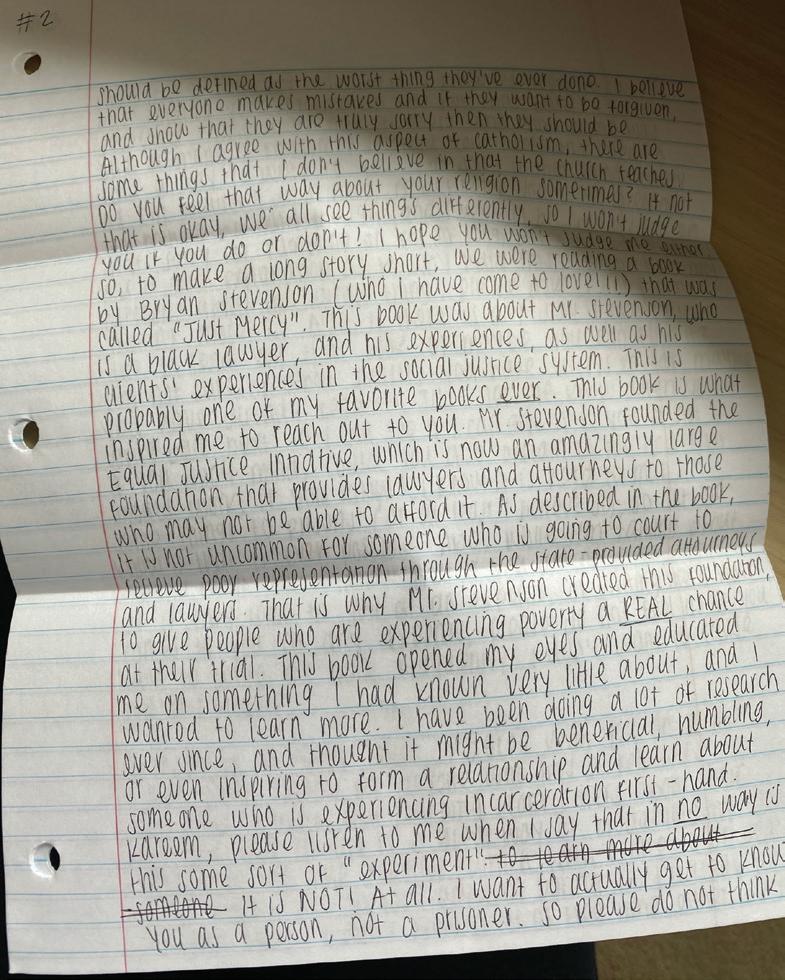 #2
should be defined as the worst thing they've ever done. I believe
that everyone makes mistakes and if they want to be forgiven,
and show that they are truly sorry then they should be.
Although I agree with this aspect of catholism, there are
some things that I don't believe in that the church teaches.
Do you feel that way about your religion sometimes? If not
that is okay, we all see things differently, so I won't judge
you if you do or don't! I hope you won't judge me either.
So, to make a long story short, we were reading a book
by Bryan Stevenson (who I have come to love!!) that was
called "Just Mercy". This book was about Mr. Stevenson, who
is a black lawyer, and his experiences, as well as his
clients' experiences in the social justice system. This is
probably one of my favorite books ever. This book is what
inspired me to reach out to you. Mr. Stevenson founded the
Equal Justice Initiative, which is now an amazingly large
foundation that provides lawyers and attourneys to those
who may not be able to afford it. As described in the book,
it is not uncommon for someone who is going to court to
recieve poor representation through the state-provided attourneys
and lawyers. That is why Mr. Stevenson created this foundation,
to give people who are experiencing poverty a REAL chance
at their trial. This book opened my eyes and educated
me on something I had known very little about, and I
wanted to learn more. I have been doing a lot of research
ever since, and thought it might be beneficial, humbling,
or even inspiring to form a relationship and learn about
someone who is experiencing incarcerdtion first-hand.
Kareem, please listen to me when I say that in no way is
this some sort of "experiment" to learn more about
someone It is NOT! At all. I want to actually get to know
you as a person, not a prisoner. So please do not think